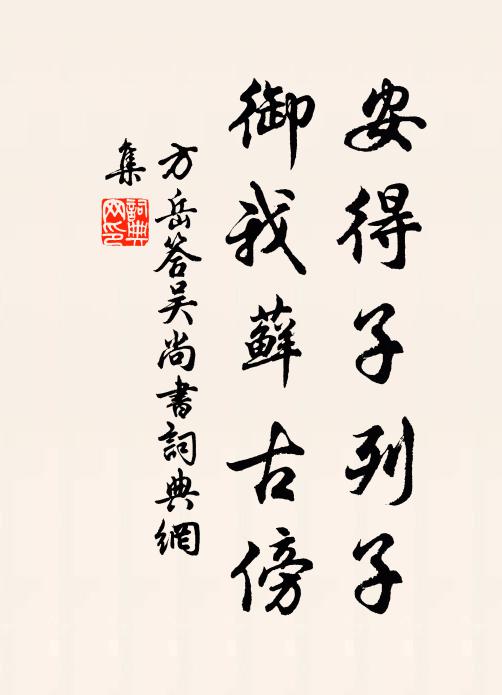 安得子列子
御我蘚古傍
方岳答吴尚書詞典網
集
詞典
网印